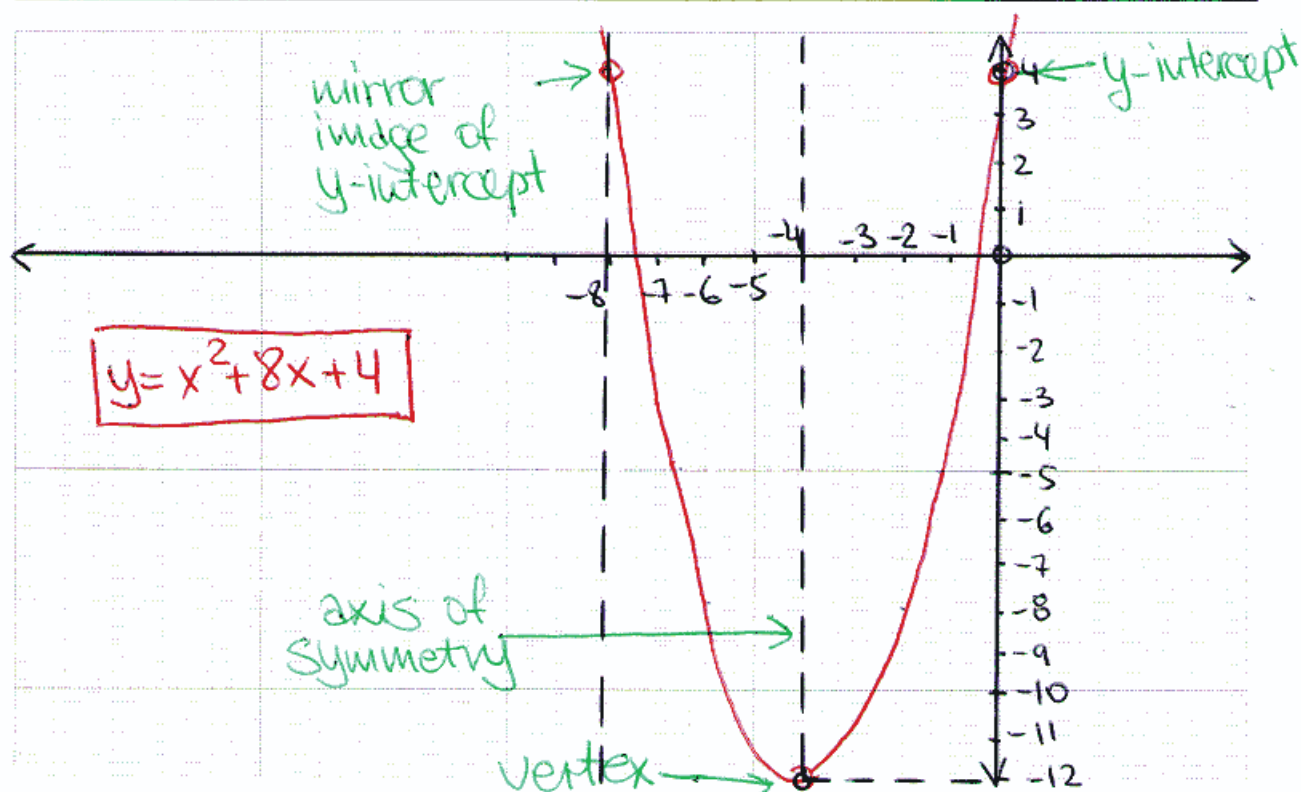 mirror
image of
y-intercept
y-intercept
4
3
2
1
-4 -3 -2 -1
-8 -7 -6 -5
y=x²+8x+4
-1
-2
-3
-4
-5
-6
-7
-8
-9
-10
-11
-12
axis of
symmetry
vertex